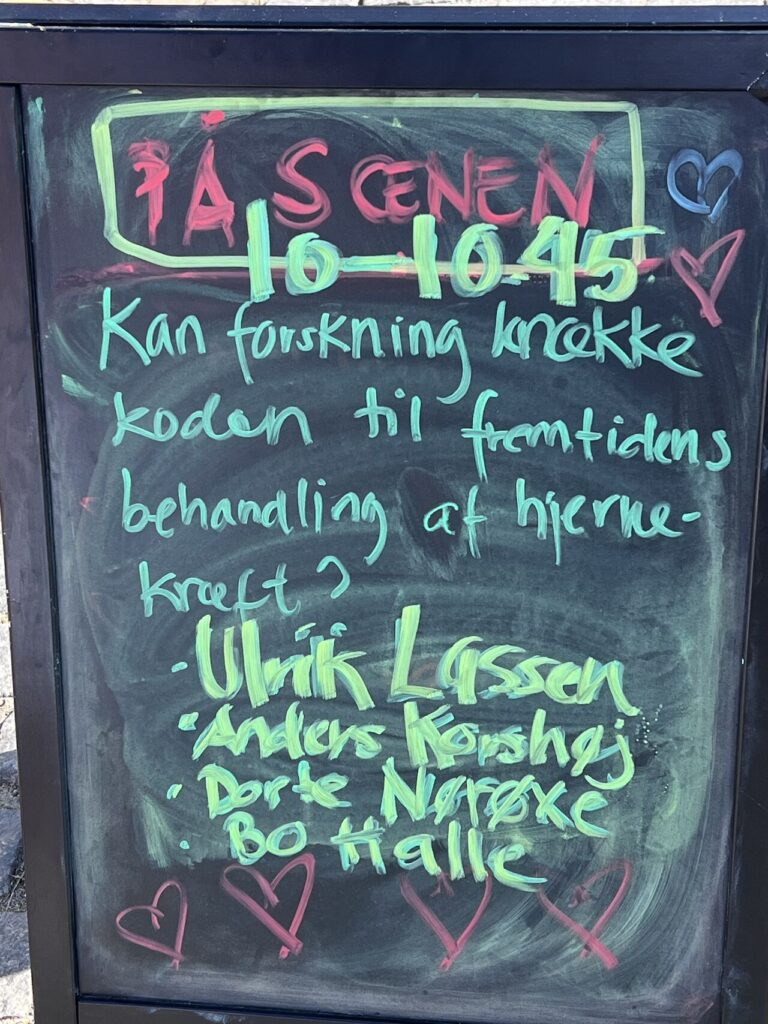 PÅ SCENEN
10-10.45
Kan forskning knække
koden til fremtidens
behandling af hjerne-
kræft?
- Ulrik Lassen
· Anders Korshøj
· Dorte Nørøxe
· Bo Halle